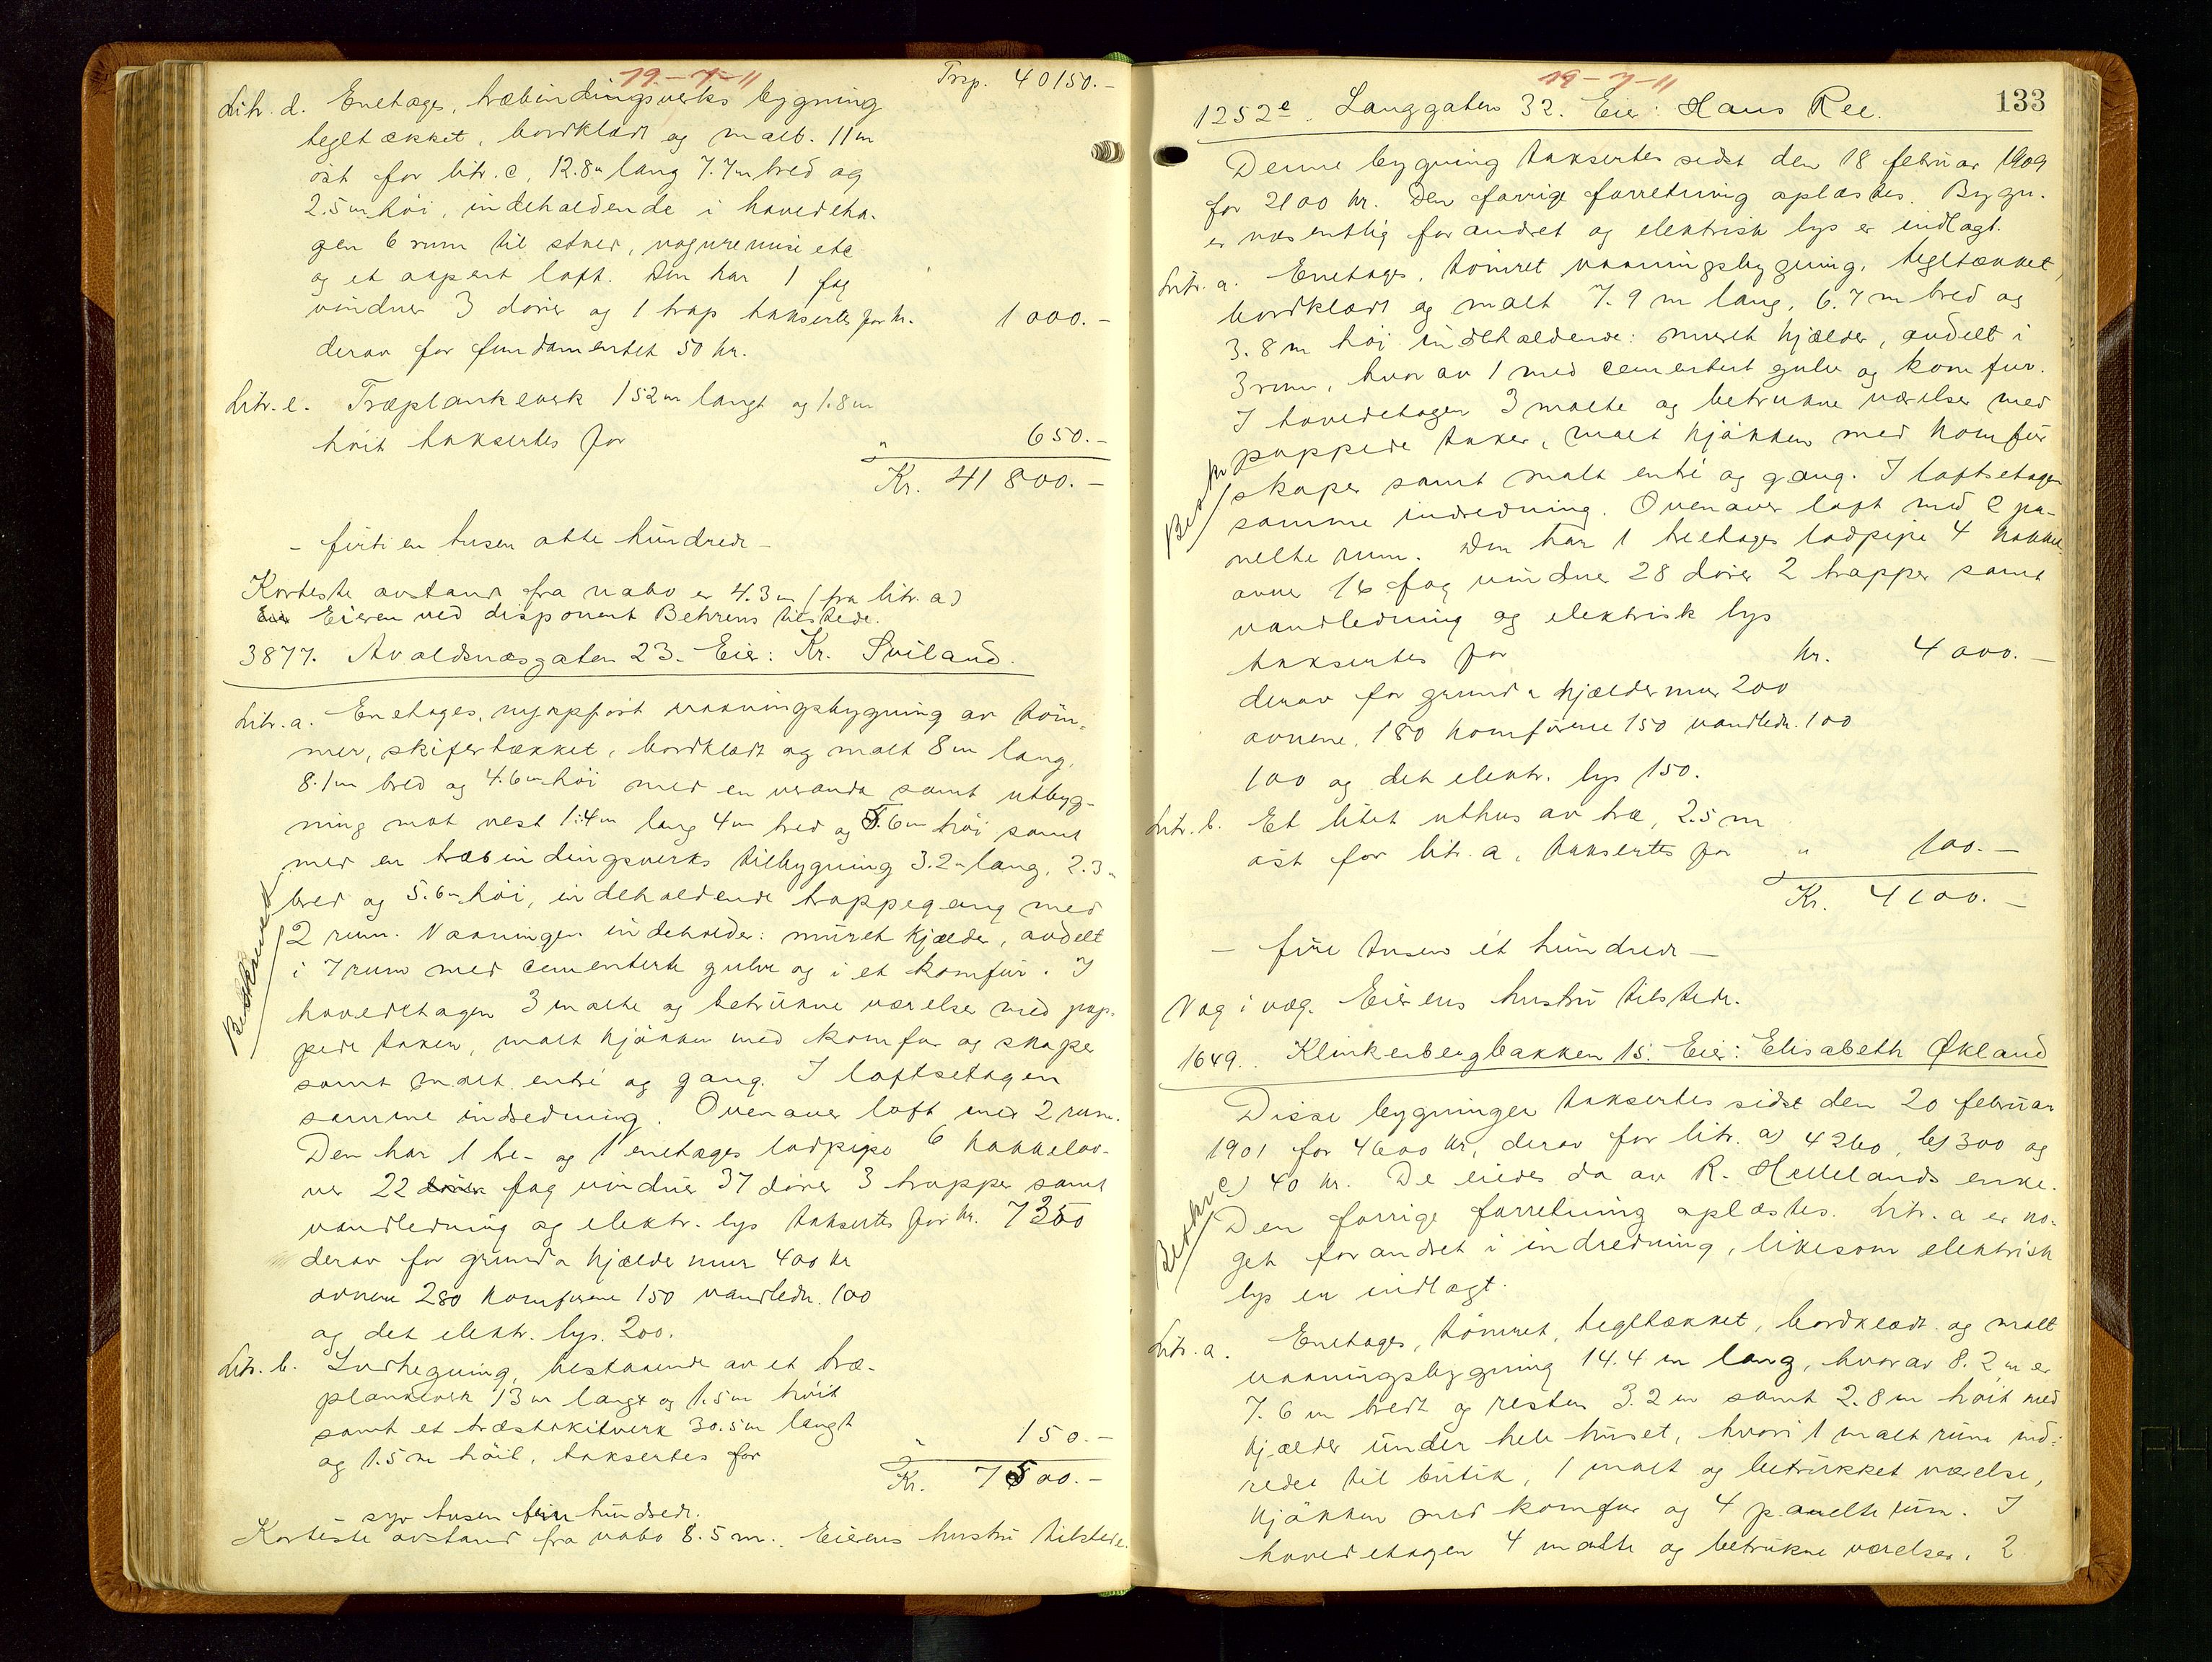 19-7-11
Trsp. 40150.-
Litr. d. Enetages, træbindingsverks bygning
tegltækket, bordklædt og malt. 11 m
øst for litr. c, 12.8m lang 7.7m bred og
2.5m høi, indeholdende i hovedeta-
gen 6 rum til stald, vognremise etc
og et aapent loft. Den har 1 fag
vinduer 3 dører og 1 trap takseres for kr. 1000.-
derav for fundamentet 50 kr.
Litr. e. Træplankeverk 152m langt og 1.8m
høit takseres for " 650.-
Kr. 41800.-
- firti en tusen otte hundrede -
Korteste avstand fra nabo er 4.3m (fra litr. a)
Eieren ved disponent Behrens tilstede.
3877. Avaldsnæsgaten 23. Eier: Kr. Sviland.
Litr. a. Enetages, nyopført vaaningsbygning av tøm-
mer, skifertækket, bordklædt og malt 8m lang,
8.1m bred og 4.6m høi med en veranda samt utbyg-
ning mot vest 1.4m lang 4m bred og 5.6m høi samt
med en træbindingsverks tilbygning 3.2m lang, 2.3m
bred og 5.6m høi, indeholdende trappegang med
2 rum. Vaaningen indeholder: muret kjælder, avdelt
i 7 rum med cementerte gulve og i et komfur. I
hovedetagen 3 malte og betrukne værelser med pap-
pede taker, malt kjøkken med komfur og skaper
samt malt entré og gang. I loftsetagen
samme indredning. Ovenover loft med 2 rum.
Den har 1 tre- og 1 enetages lodpipe 6 kakkelov-
ner 22 dører fag vinduer 37 dører 3 trapper samt
vandledning og elektr. lys takseres for kr. 7350
derav for grund & kjældermur 400 kr
ovnene 280 komfurene 150 vandledn. 100
og det elektr. lys. 200.
Litr. b. Indhegning, bestaaende av et træ-
plankeverk 13m langt og 1.5m høit
samt et træstakitverk 30.5m langt
og 1.5m høit, takseres for " 150.-
Kr. 7500.-
- syv tusen fem hundrede.
Korteste avstand fra nabo 8.5m. Eierens hustru tilstede.
133
19-7-11
1252e. Langgaten 32. Eier: Hans Ree.
Denne bygning taksertes sidst den 18 februar 1909
for 2100 kr. Den forrige forretning oplæstes. Bygn.
er væsentlig forandret og elektrisk lys er indlagt.
Litr. a. Enetages, tømret vaaningsbygning, tegltækket,
bordklædt og malt 7.9m lang, 6.7m bred og
3.8m høi indeholdende: muret kjælder, avdelt i
3 rum, hvor av 1 med cementert gulv og komfur.
I hovedetagen 3 malte og betrukne værelser med
pappede taker, malt kjøkken med komfur
skaper samt malt entré og gang. I loftsetagen
samme indredning. Ovenover loft med 2 pa-
nelte rum. Den har 1 treetages lodpipe 4 kakkel-
ovne 16 fag vinduer 28 dører 2 trapper samt
vandledning og elektrisk lys
takseres for kr. 4000.-
derav for grund & kjældermur 200
ovnene, 180 komfurene 150 vandledn. 100
100 og det elektr. lys 150.
Litr. b. Et litet uthus av træ, 2.5m
øst for litr. a, takseres for " 100.-
Kr. 4100.-
- fire tusen ét hundrede -
Væg i væg. Eierens hustru tilstede.
1649. Klinkenbergbakken 15. Eier: Elisabeth Økland
Disse bygninger taksertes sidst den 20 februar
1901 for 4600 kr, derav for litr. a) 4260, b) 300 og
c) 40 kr. De eiedes da av R. Hettelands enke.
Den forrige forretning oplæstes. Litr. a er no-
get forandret i indredning, likesom elektrisk
lys er indlagt.
Litr. a. Enetages, tømret, tegltækket, bordklædt og malt
vaaningsbygning 14.4m lang, hvorav 8.2m er
7.6m bredt og resten 3.2m samt 2.8m høit med
kjælder under hele huset, hvori 1 malt rum ind-
redet til butik, 1 malt og betrukket værelse,
kjøkken med komfur og 4 panelte rum. I
hovedetagen 4 malte og betrukne værelser, 2